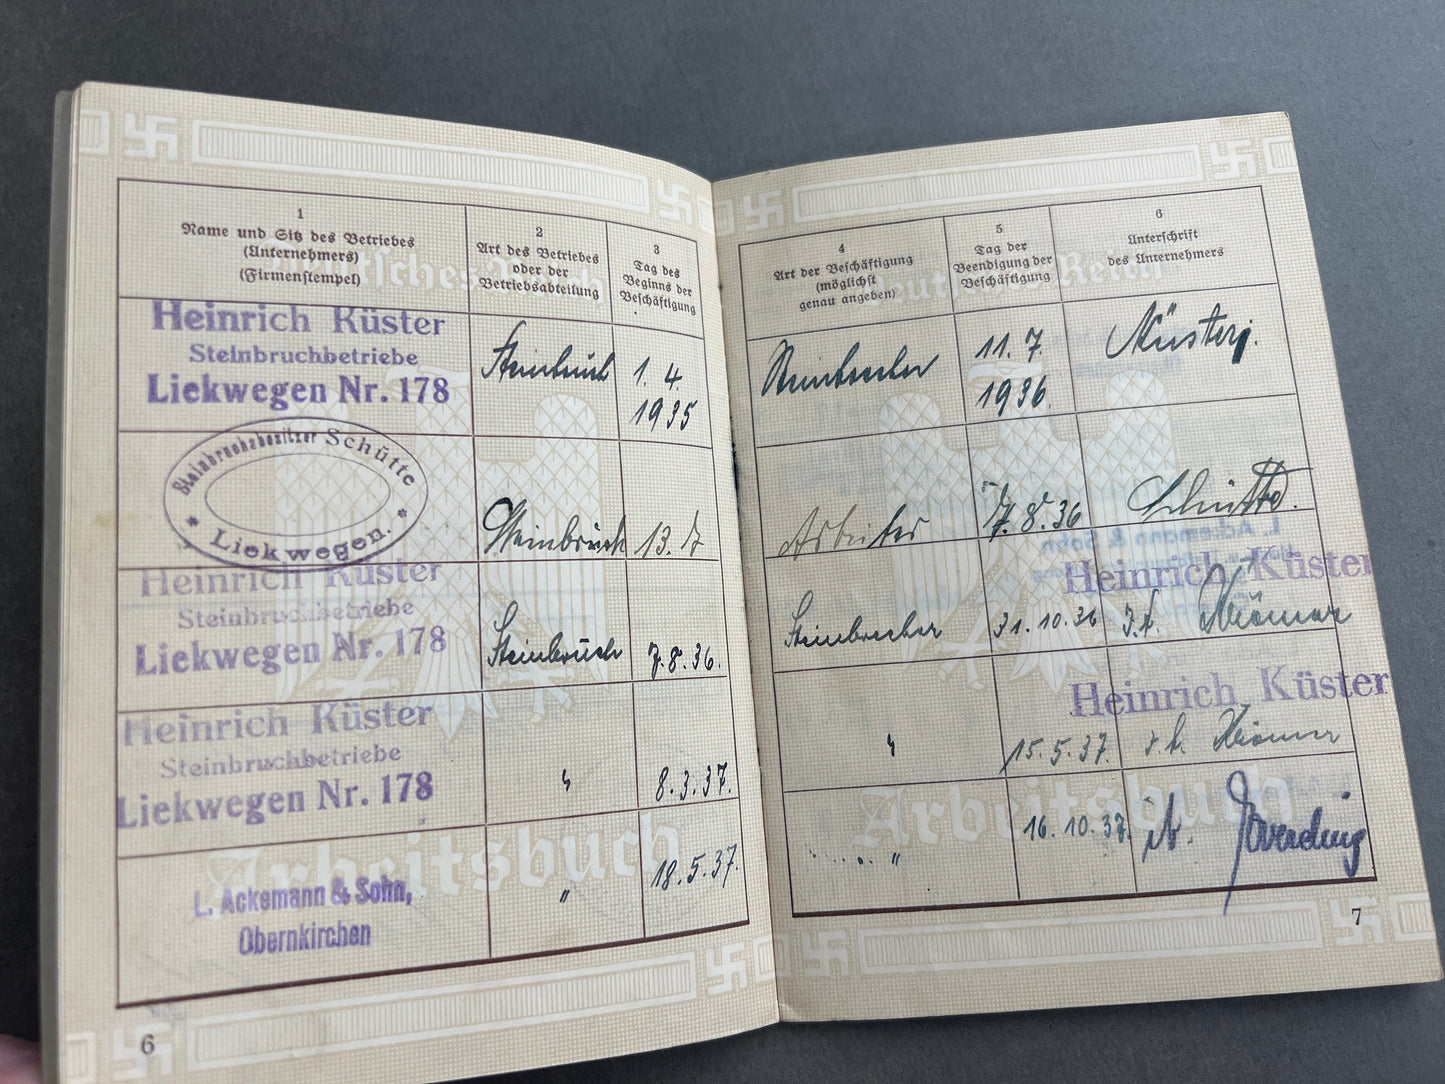 1
Name und Sitz des Betriebes
(Unternehmers)
(Firmenstempel)
2
Art des Betriebes
oder der
Betriebsabteilung
3
Tag des
Beginns der
Beschäftigung
Heinrich Küster
Steinbruchbetriebe
Liekwegen Nr. 178
Steinbruch
1. 4.
1935
Steinbruchsbesitzer Schütte
* Liekwegen. *
Steinbruch
13. 7
Heinrich Küster
Steinbruchbetriebe
Liekwegen Nr. 178
Steinbruch
7. 8. 36.
Heinrich Küster
Steinbruchbetriebe
Liekwegen Nr. 178
"
8. 3. 37.
L. Ackemann & Sohn,
Obernkirchen
"
18. 5. 37.
Arbeitsbuch
6
4
Art der Beschäftigung
(möglichst
genau angeben)
5
Tag der
Beendigung der
Beschäftigung
6
Unterschrift
des Unternehmers
Steinbrecher
11. 7.
1936
Küster.
Arbeiter
7. 8. 36
Schütte.
Heinrich Küster
Steinbrecher
31. 10. 36
Heinrich Küster
"
15. 5. 37.
"
16. 10. 37.
Arbeitsbuch
7